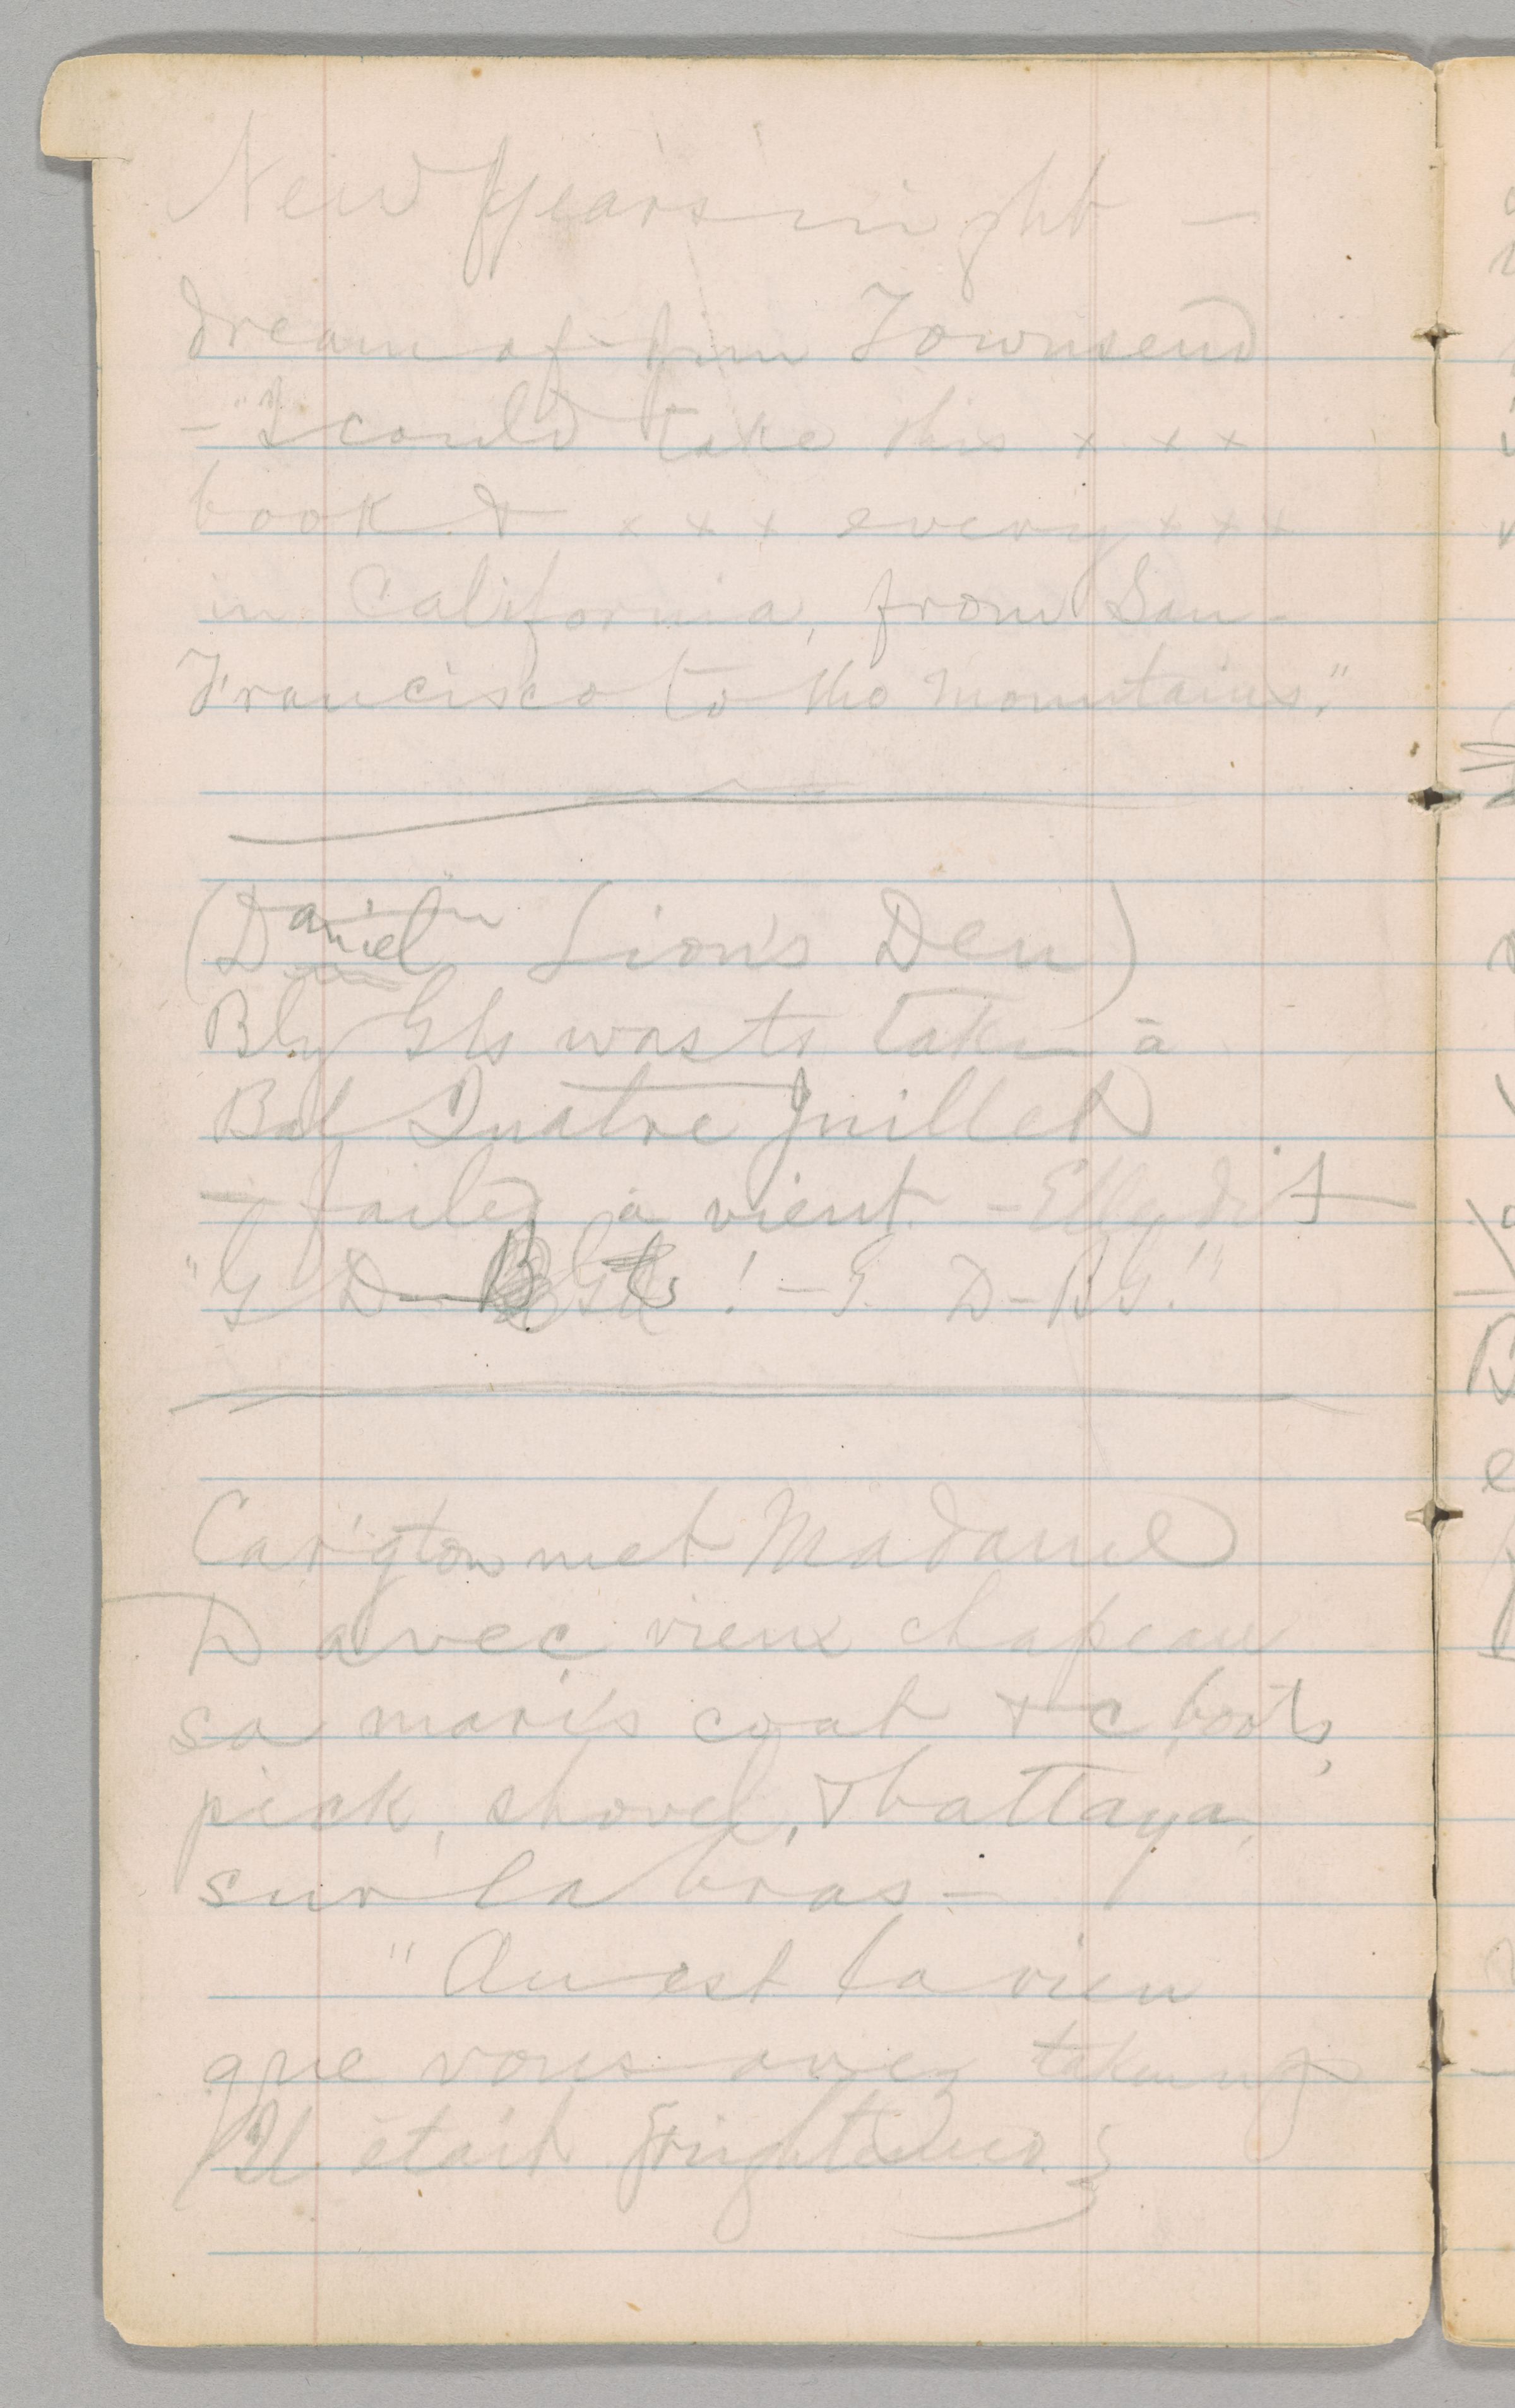 New Years night —
dream of Jim Townsend
— "I could take this x x x
book & x x x every x x x
in California, from San
Francisco to the mountains."
(Daniel Lion's Den)
Bly Gls was to take à
Bal Quatre Juillet
— failed à vient. — Elle dit
"G D— B Gts! — G. D— B G."
Car'gton met Madame
D avec vieux chapeau
sa mari's coat & c boots,
pick, shovel, & battaya,
sur la bras —
" Au est la rien
que vous avez taken up
(Il était frightened.)